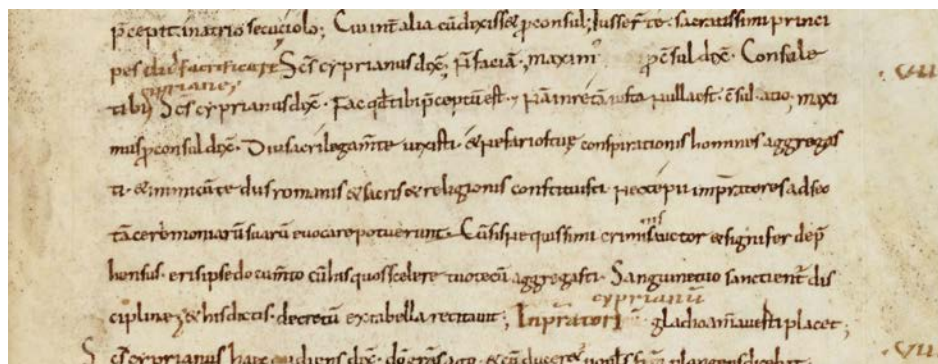 p̄cepit. in atrio secuciolo; Cui int̄ alia cū dixisset p̄consul; Iusser̄ te. sacratissimi princi
pes diis sacrificare Sc̄s cyprianus dix̄. N̄ faciā. maximꝰ p̄c̄sul dix̄. Consule
cypriane
tibi; Sc̄s cyprianus dix̄. Fac qd̄ tibi p̄ceptū est. Nā in re tā iusta nulla est c̄sultatio; maxi
mus p̄consul dix̄. Diu sacrilega m̄te uixisti. & nefarios tuę conspirationis homines aggregas
ti. & inimicū te diis romanis & sacris & religionis constituisti. Nec te pii imp̄ratores ad sec
tā ceremoniarū suarū euocare potuerunt. Cū sis nequissimi criminis auctor & signifer dep̄
honsus. eris ipse documto cū his quos scelere tuo tecū aggregasti. Sanguine tuo sancient̄ dis
ciplinę; & his dictis. decretū ex tabella recitauit; In p̄ratori
cyprianū
gladio aīmauerti placet;
Sc̄s cyprianus hæc audiens dix̄. dō grās ago. & cū ducer&
VII
VII